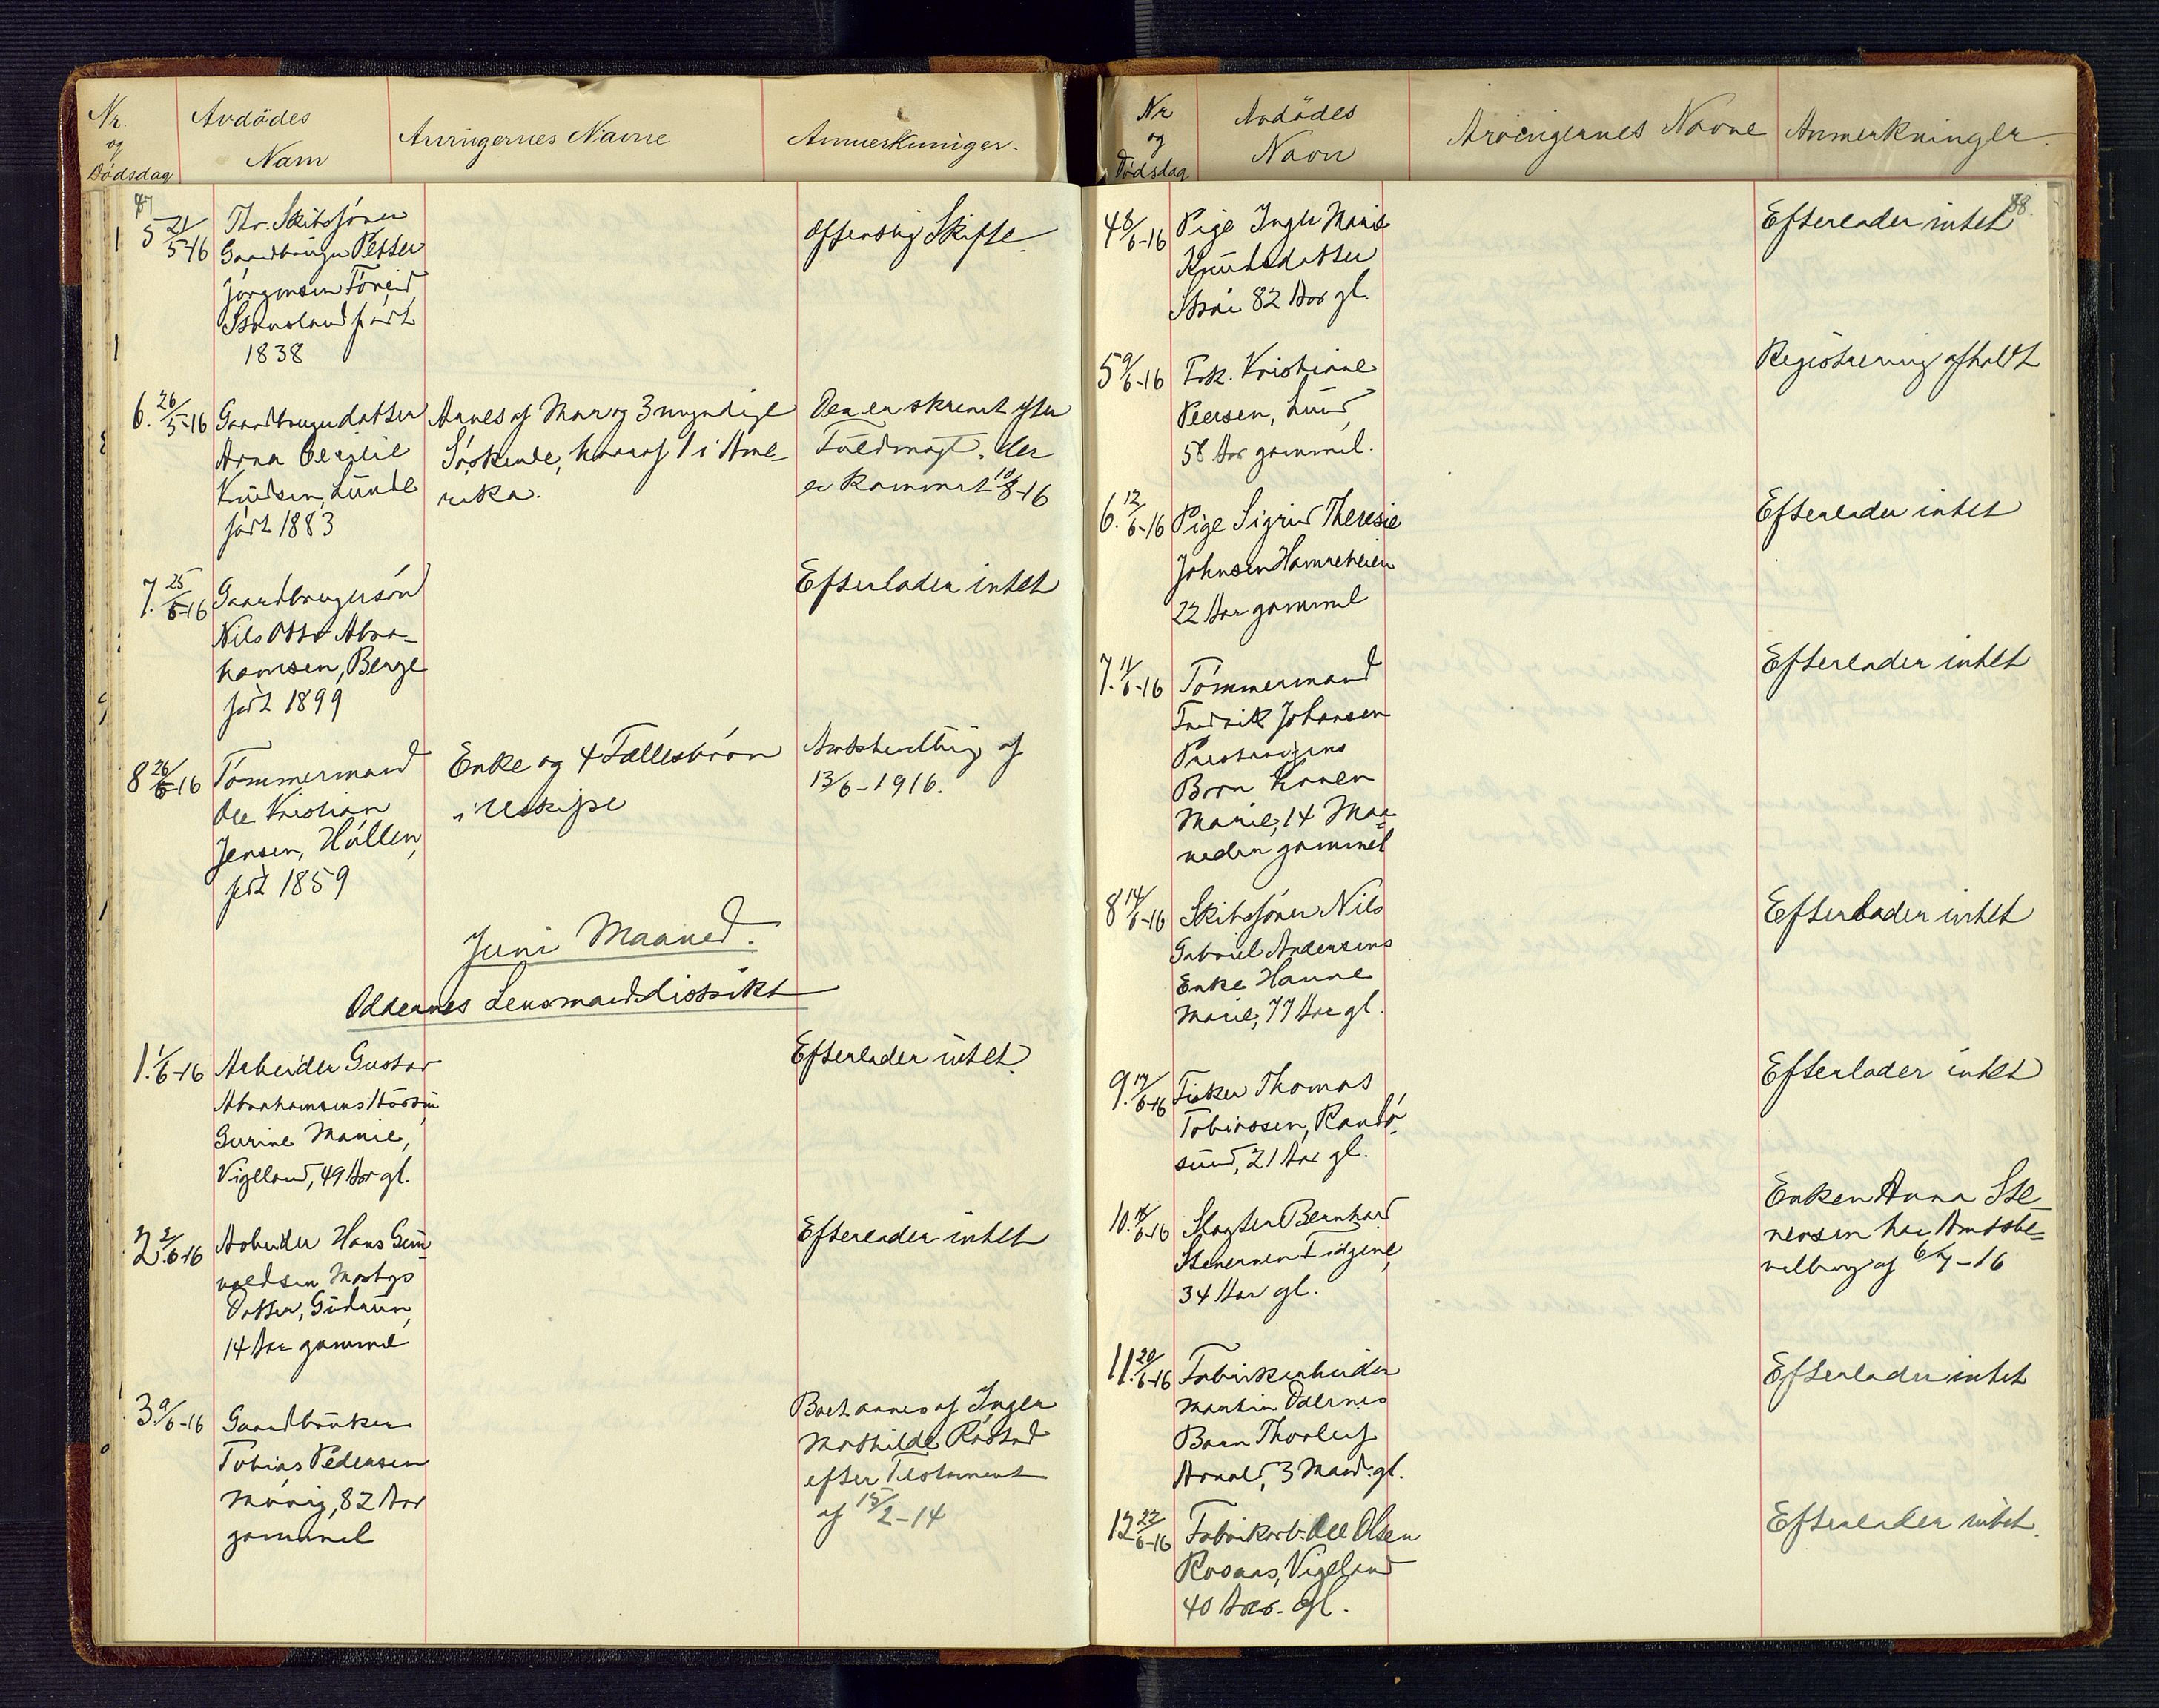 Nr.
og
Dödsdag
Avdödes
Navn
Arvingernes Navne
Anmerkninger.
87
5 21/5-16
Thr. Skibsfører
Gaardbruger Petter
Jørgensen Føreid
født
1838
Offentlig Skifte.
6. 26/5-16
Gaardbrugerdatter
Anna Cecilie
Knudsen, Lunde
født 1883
Arves af Mor og 3 myndige
Søskende, hvoraf 1 i Ame-
rika.
Der er skrevet efter
Fuldmagt. der
er kommet 10/8-16
7. 25/5-16
Gaardbrugersøn
Nils Otto Abra-
hamsen, Berge
født 1899
Efterlader intet
8 26/5-16
Tømmermand
Ole Kristian
Jensen, Høllen,
født 1859
Enke og 4 Fællesbørn
i uskifte
Amtsbevilling af
13/6-1916.
Juni Maaned.
Oddernes Lensmandsdistrikt
1. 1/6-16
Arbeider Gustav
Abrahamsens Hustru
Gurine Marie,
Vigeland, 49 Aar gl.
Efterlader intet.
2. 2/6-16
Arbeider Hans Gun-
valdsen Mosbys
Datter, Gudrun,
14 Aar gammel
Efterlader intet
3. 9/6-16
Gaardbruker
Tobias Pedersen
Møvig, 82 Aar
gammel
Boet arves af Inger
Mathilde Røstad
efter Testament
af 15/2-14
Nr
og
Dødsdag
Avdødes
Navn
Arvingernes Navne
Anmerkninger.
88.
4 8/6-16
Pige Inger Marie
Knudsdatter
Strai 82 Aar gl.
Efterlader intet
5 9/6-16
Frk. Kristiane
Peersen, Lund,
58 Aar gammel.
Registrering afholdt
6. 12/6-16
Pige Sigrid Theresie
Johnsen Hamreheien
22 Aar gammel
Efterlader intet
7. 11/6-16
Tømmermand
Fredrik Johansen
Barn Karen
Marie, 14 Maa-
neder gammel
Efterlader intet
8 14/6-16
Skibsfører Nils
Gabriel Andersens
Enke Hanne
Marie, 77 Aar gl.
Efterlader intet
9. 17/6-16
Fisker Thomas
Tobiassen, Randø-
sund, 21 Aar gl.
Efterlader intet
10. 18/6-16
Slagter Bernhard
Stenersen Eidjene,
34 Aar gl.
Enken Anna Ste-
nersen har Amtsbe-
villing af 6/7-16
11. 20/6-16
Fabrikarbeider
Martin Odernes
Barn Thorleif
Arnold, 3 Maad. gl.
Efterlader intet
12 22/6-16
Fabrikarb. Ole Olsen
Rosaas, Vigeland
40 Aar. gl.
Efterlader intet.